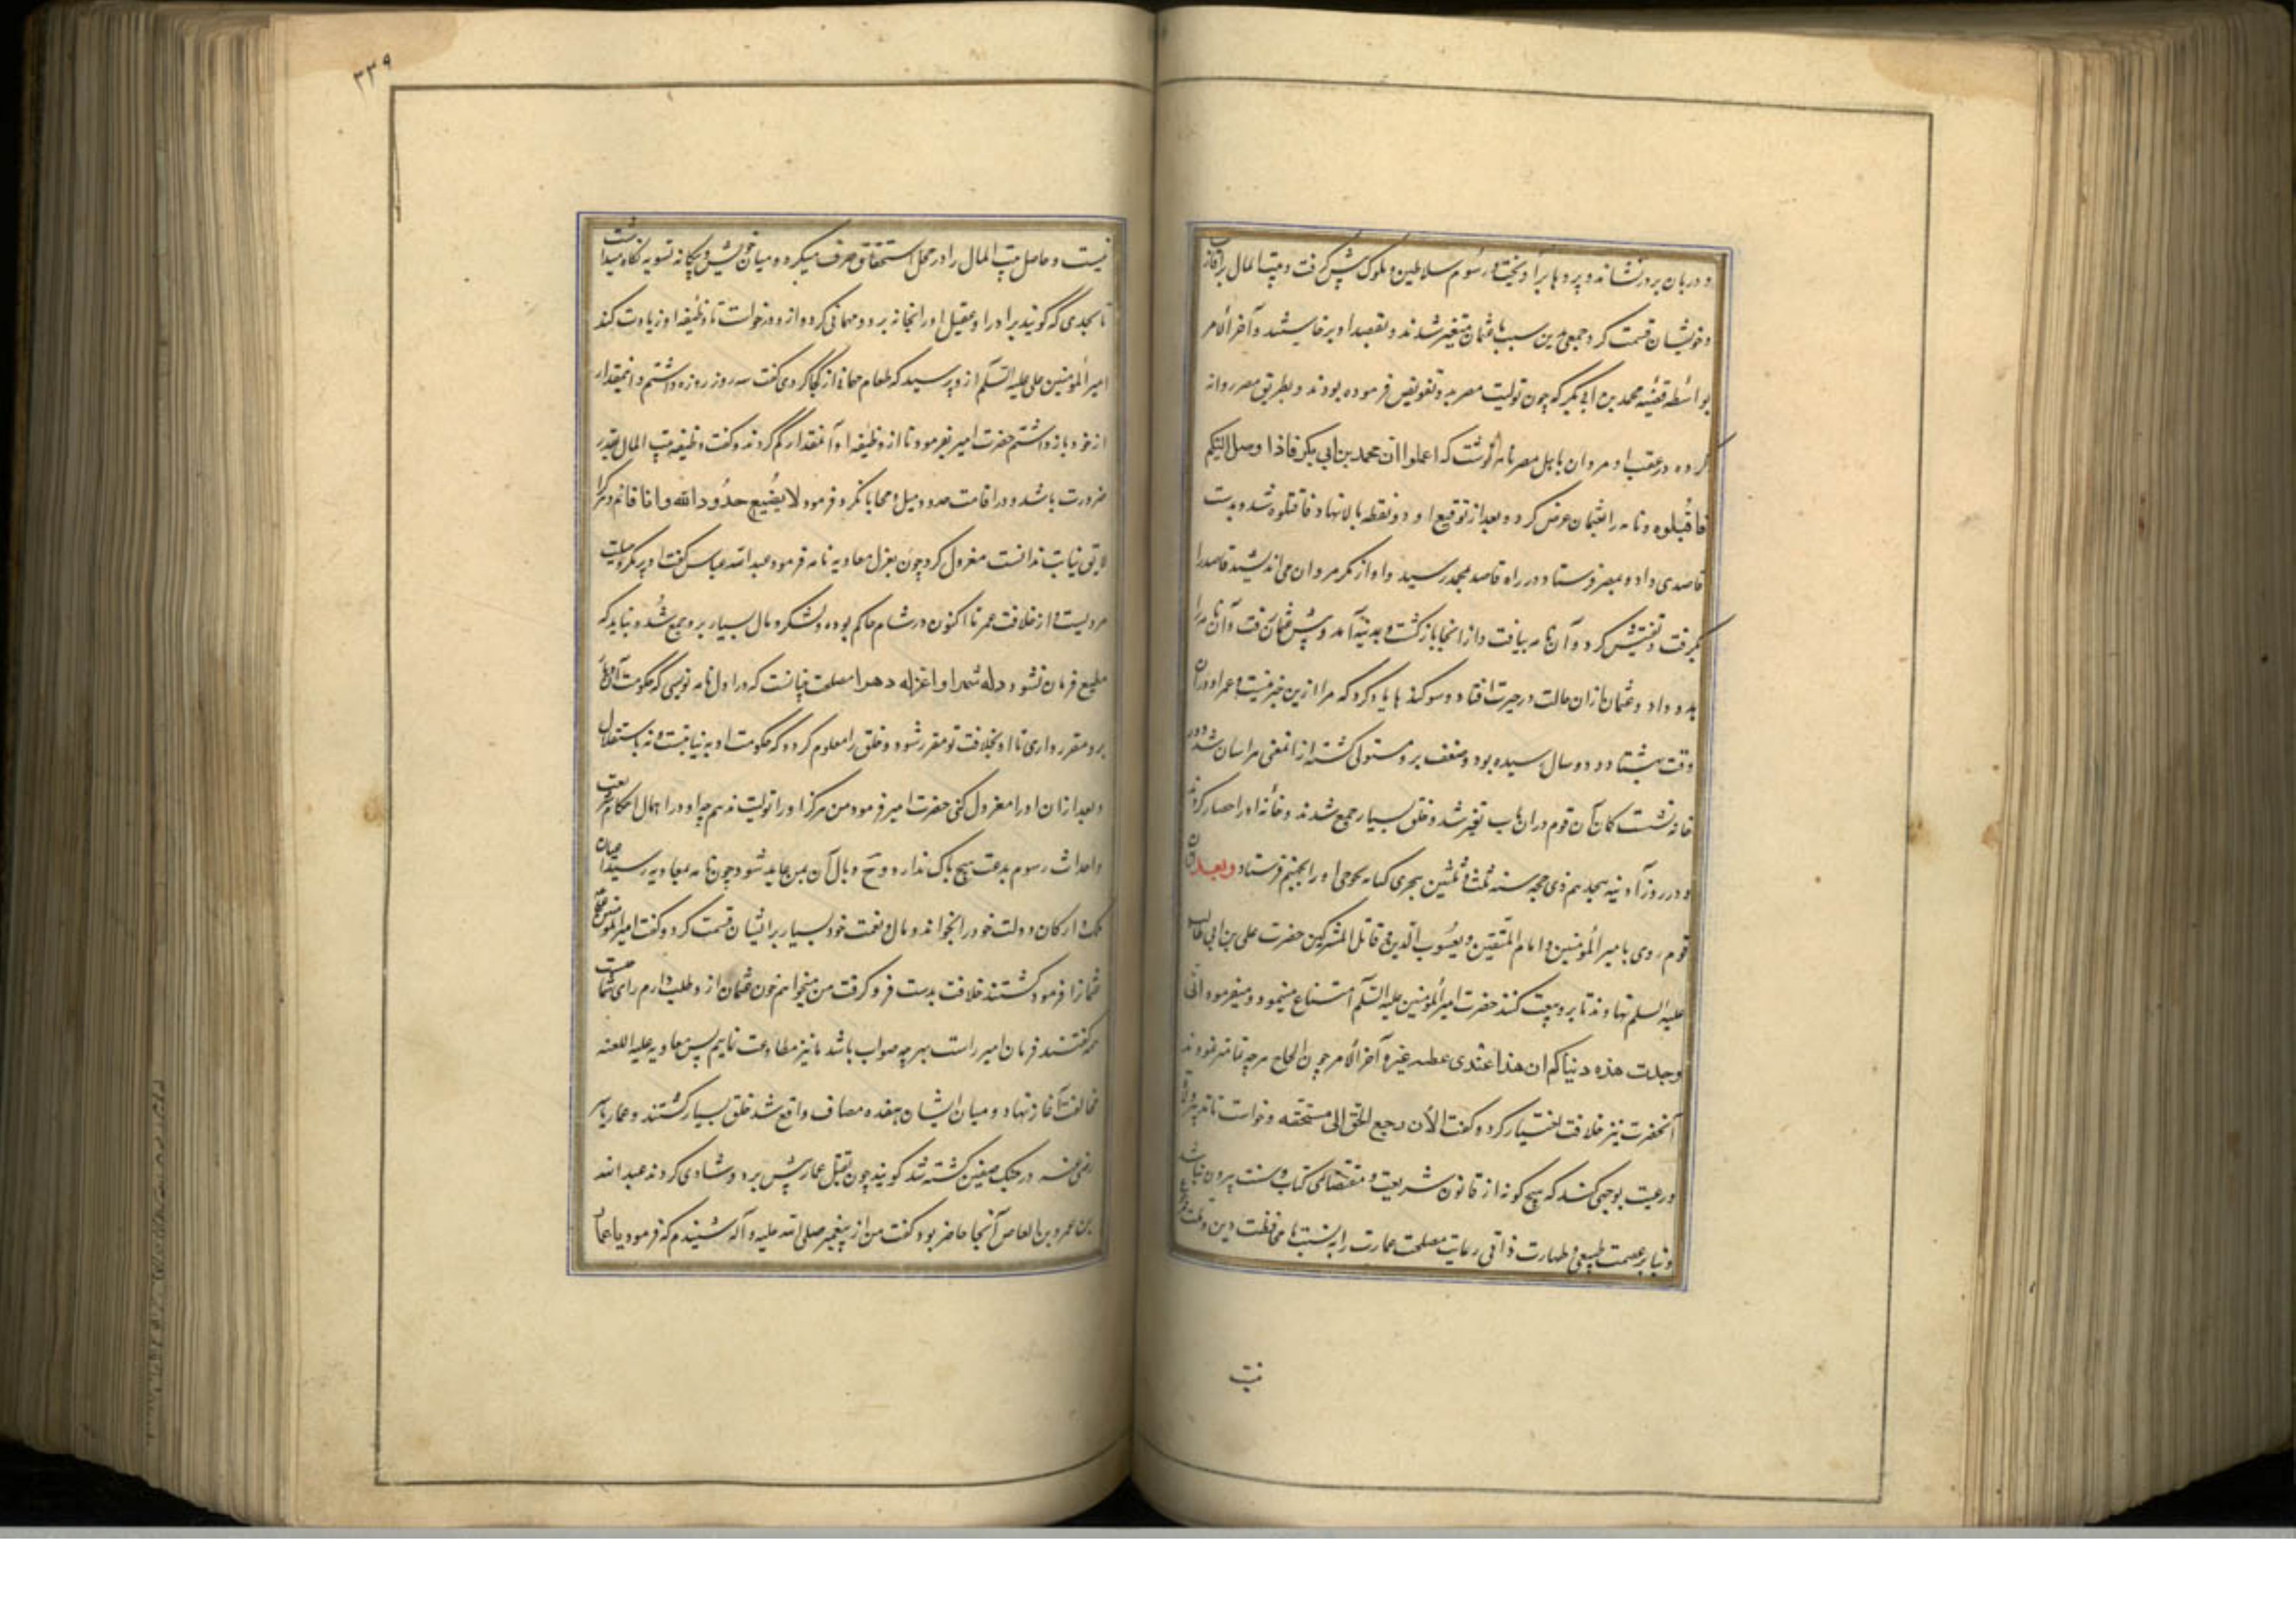 و دربان بر در نشاند و پردها برآویخت و رسوم سلاطین و ملوک پیش گرفت و بیت المال بر اقارب
و خویشان قسمت کرد و جمعی بدین سبب با عثمان متغیر شدند و بقصد او برخاستند و آخر الامر
بواسطه قضیه محمد بن ابی بکر که چون تولیت مصر بدو تفویض فرموده بودند و بطریق مصر روانه
کرده در عقب او مروان باهل مصر نامه نوشت که اعملوا ان محمد بن ابی بکر فاذا وصل الیکم
فاقبلوه و نامه را بعثمان عرض کرد و بعد از توقیع او دو نقطه بالا نهاد فاقتلوه شد و بدست
قاصدی داد و بمصر فرستاد و در راه قاصد بمحمد رسید و او از مکر مروان می اندیشید قاصد را
بگرفت و تفتیش کرد و آن نامه بیافت و از انجا بازگشت و بمدینه آمد و پیش عثمان رفت و آن نامه را
بدو داد و عثمان از ان حالت در حیرت افتاد و سوکندها یاد کرد که مرا ازین خبر نیست و عمر او در ان
وقت بهشتاد و دو سال رسیده بود و ضعف برو مستولی گشته از انمعنی هراسان شد و در
خانه نشست کان آن قوم در ان باب تغیر شد و خلق بسیار جمع شدند و خانه او را حصار کردند
و در روز آدینه هجدهم ذی حجه سنه ثلث و ثلثین هجری کنانه او را بجهنم فرستاد و بعد از ان
قوم روی بامیر المؤمنین و امام المتقین و یعسوب الدین و قاتل المشرکین حضرت علی بن ابی طالب
علیه السلم نهادند تا برو بیعت کنند حضرت امیر المؤمنین علیه السلم امتناع مینمود و میفرمود انی
وجدت هذه دنیاکم ان هذا عندی عطسه عنزه آخر الامر چون الحاح هر چه تمامتر نمودند
آنحضرت نیز خلافت اختیار کرد و گفت الآن رجع الحق الی مستحقه و خواست تا تدبیر
و رعیت بوجهی کند که هیچ گونه از قانون شریعت و مقتضای کتاب و سنت بیرون نباشد
و بنا بر عصمت طبیعی و طهارت ذاتی رعایت مصلحت عمارت را به نسبت با محافظت دین و ملت
نیست
۳۳۹
نیست و حاصل بیت المال را در محل استحقاق صرف میکرد و میان خویش و بیگانه تسویه نگاه میداشت
تا بحدی که گویند برادر او عقیل او را بخانه برد و مهمانی کرد و از و درخواست تا وظیفه او زیادت کند
امیر المؤمنین علی علیه السلم از و پرسید که طعام از کجا کردی گفت سه روز روزه داشتم و اینمقدار
از خود باز داشتم حضرت امیر بفرمود تا از وظیفه او آنمقدار کم کردند و گفت وظیفه بیت المال بقدر
ضرورت باشد و در اقامت حدود میل و محابا نکرد و فرمود لا یضیع حدود الله و انا قائم و هر کرا
لایق نیابت ندانست معزول کرد چون بعزل معاویه نامه فرمود عبد الله عباس گفت او پر مکر و حیلت
مردیست و از خلافت عمر تا اکنون در شام حاکم بوده و لشکر و مال بسیار برو جمع شد و نباید که
مطیع فرمان نشود وله شهرا و اعزله دهرا مصلحت چنانست که در اول نامه نویسی که حکومت
برو مقرر داری تا او بخلافت تو مقر شود و خلق را معلوم کردد که حکومت او به نیابتست و نه باستقلال
و بعد از ان او را معزول کنی حضرت امیر فرمود من هرگز او را تولیت ندهم چه او در اهمال احکام شریعت
و احداث رسوم بدعت هیچ باک ندارد و وبال آن بمن عاید شود چون نامه بمعاویه رسید
ارکان دولت خود را بخواند و مال و نعمت خود بسیار بر ایشان قسمت کرد و گفت امیر المومنین
عثمانرا فرمود کشتند خلافت بدست فرو گرفت من میخواهم خون عثمان از و طلب دارم رای شما چیست
همه گفتند فرمان امیر راست بهر چه صواب باشد ما نیز مطاوعت نماییم پس معاویه علیه اللعنه
مخالفت آغاز نهاد و میان ایشان هفده مصاف واقع شد خلق بسیار کشتند و عمار یاسر
رضی عنه در جنک صفین کشته شد گویند چون بقتل عمار پیش برد و شادی کردند عبد الله
بن عمرو بن العاص آنجا حاضر بود گفت من از پیغمبر صلی الله علیه و آله شنیدم که فرمود یا عمار